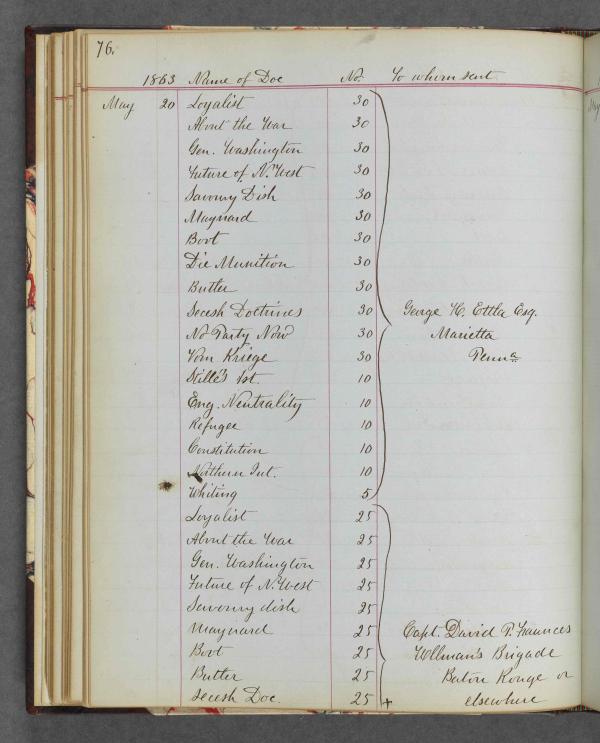 76.
1863 Name of Doc No. To whom sent
May 20 Loyalist 30
About the War 30
Gen. Washington 30
Future of N. West 30
Savoury Dish 30
Maynard 30
Boot 30
Die Munition 30
Butler 30
Secesh Doctrines 30 George H. Ettla Esq.
No Party Now 30 Marietta
Vom Kriege 30 Penna
Stillé's Int. 10
Eng. Neutrality 10
Refugee 10
Constitution 10
Northern Int. 10
Whiting 5
Loyalist 25
About the War 25
Gen. Washington 25
Future of N. West 25
Savoury dish 25
Maynard 25 Capt. David P. Fraunces
Boot 25 Ullman's Brigade
Butler 25 Baton Rouge or
Secesh Doc. 25 + elsewhere